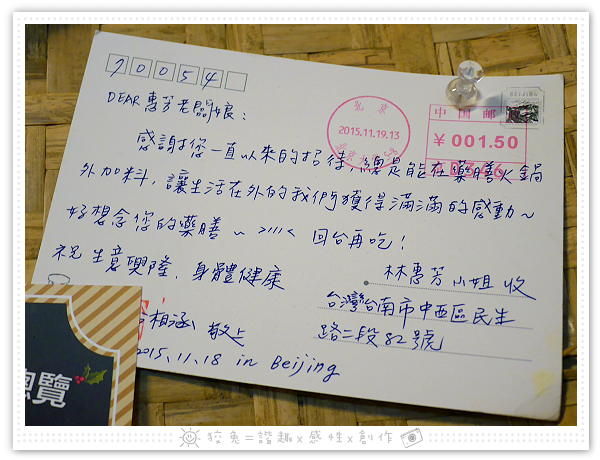 70054
DEAR 惠芳老闆娘:
感謝您一直以來的招待,總是能在藥膳火鍋
外加料,讓生活在外的我們獲得滿滿的感動~
好想念您的藥膳~ >///< 回台再吃!
祝 生意興隆、身體健康
相涵 敬上
2015.11.18 in Beijing
北京
2015.11.19.13
中国邮
¥001.50
林惠芳 小姐 收
台灣台南市中西區民生
路二段82號
覽
狡兔=諧趣x感性x創作